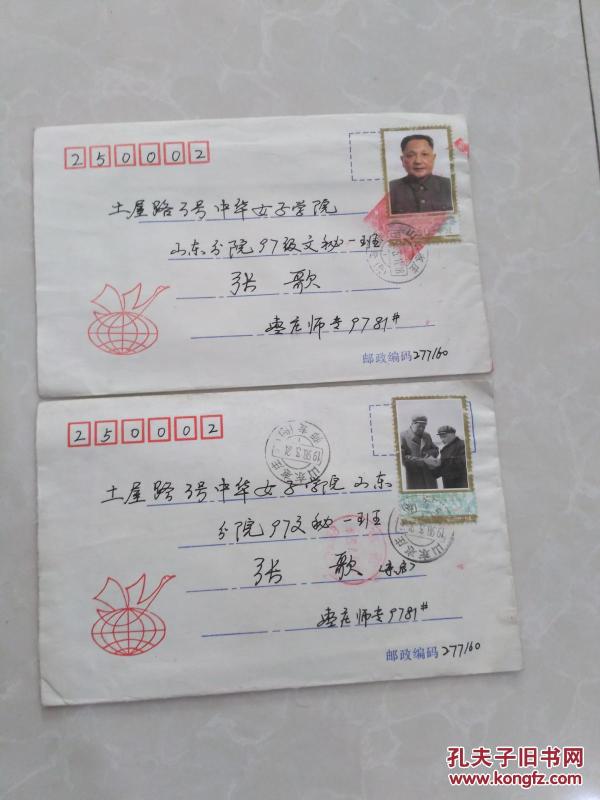 250002
土屋路3号中华女子学院
山东分院97级文秘一班
张 歌
枣庄师专9781#
邮政编码277160
250002
土屋路3号中华女子学院山东
分院97文秘一班
张 歌
枣庄师专9781#
邮政编码277160
孔夫子旧书网
www.kongfz.com